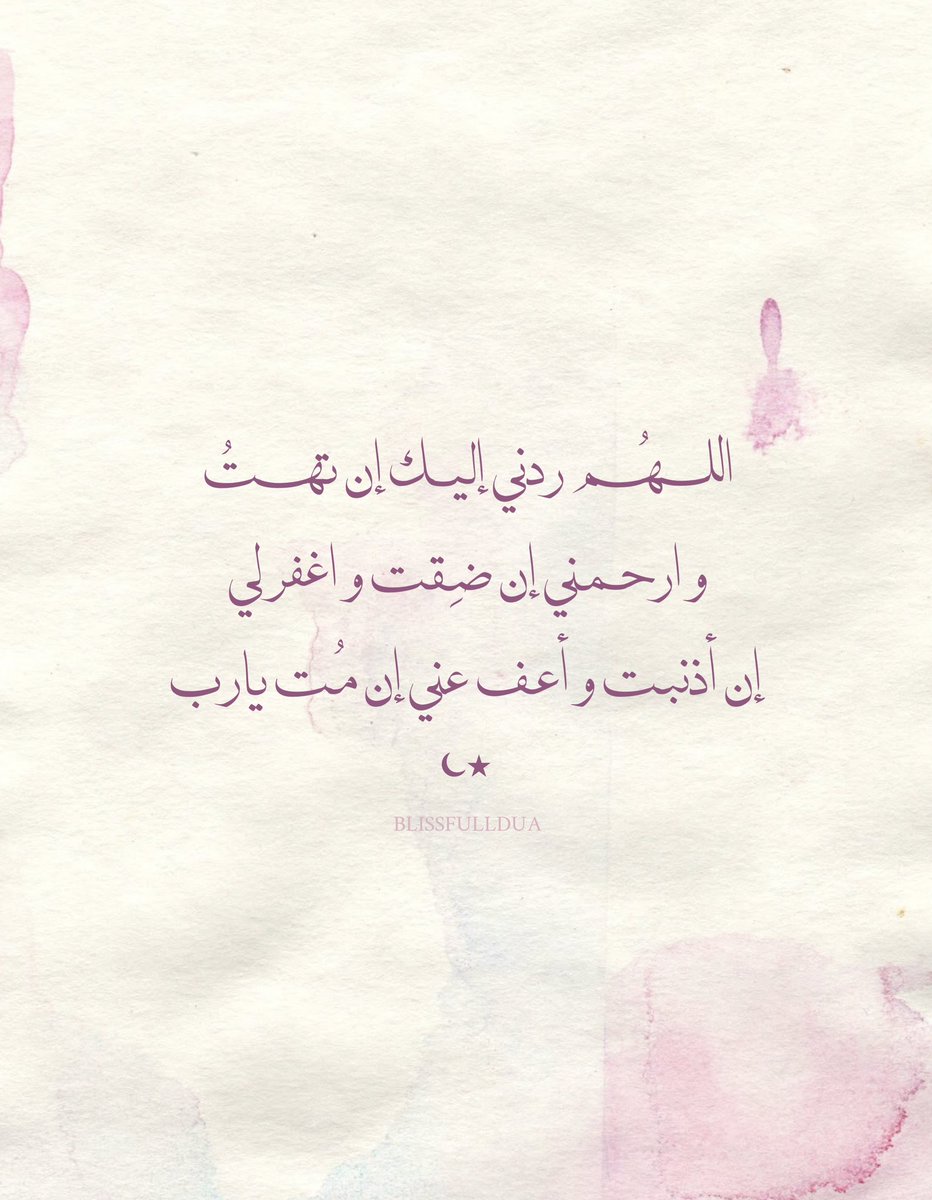 اللـــهُـــم ردني إليـك إن تهـــتُ
و ارحـمني إن ضِقت و اغفرلي
إن أذنبت و أعف عني إن مُت يارب
☾★
BLISSFULLDUA